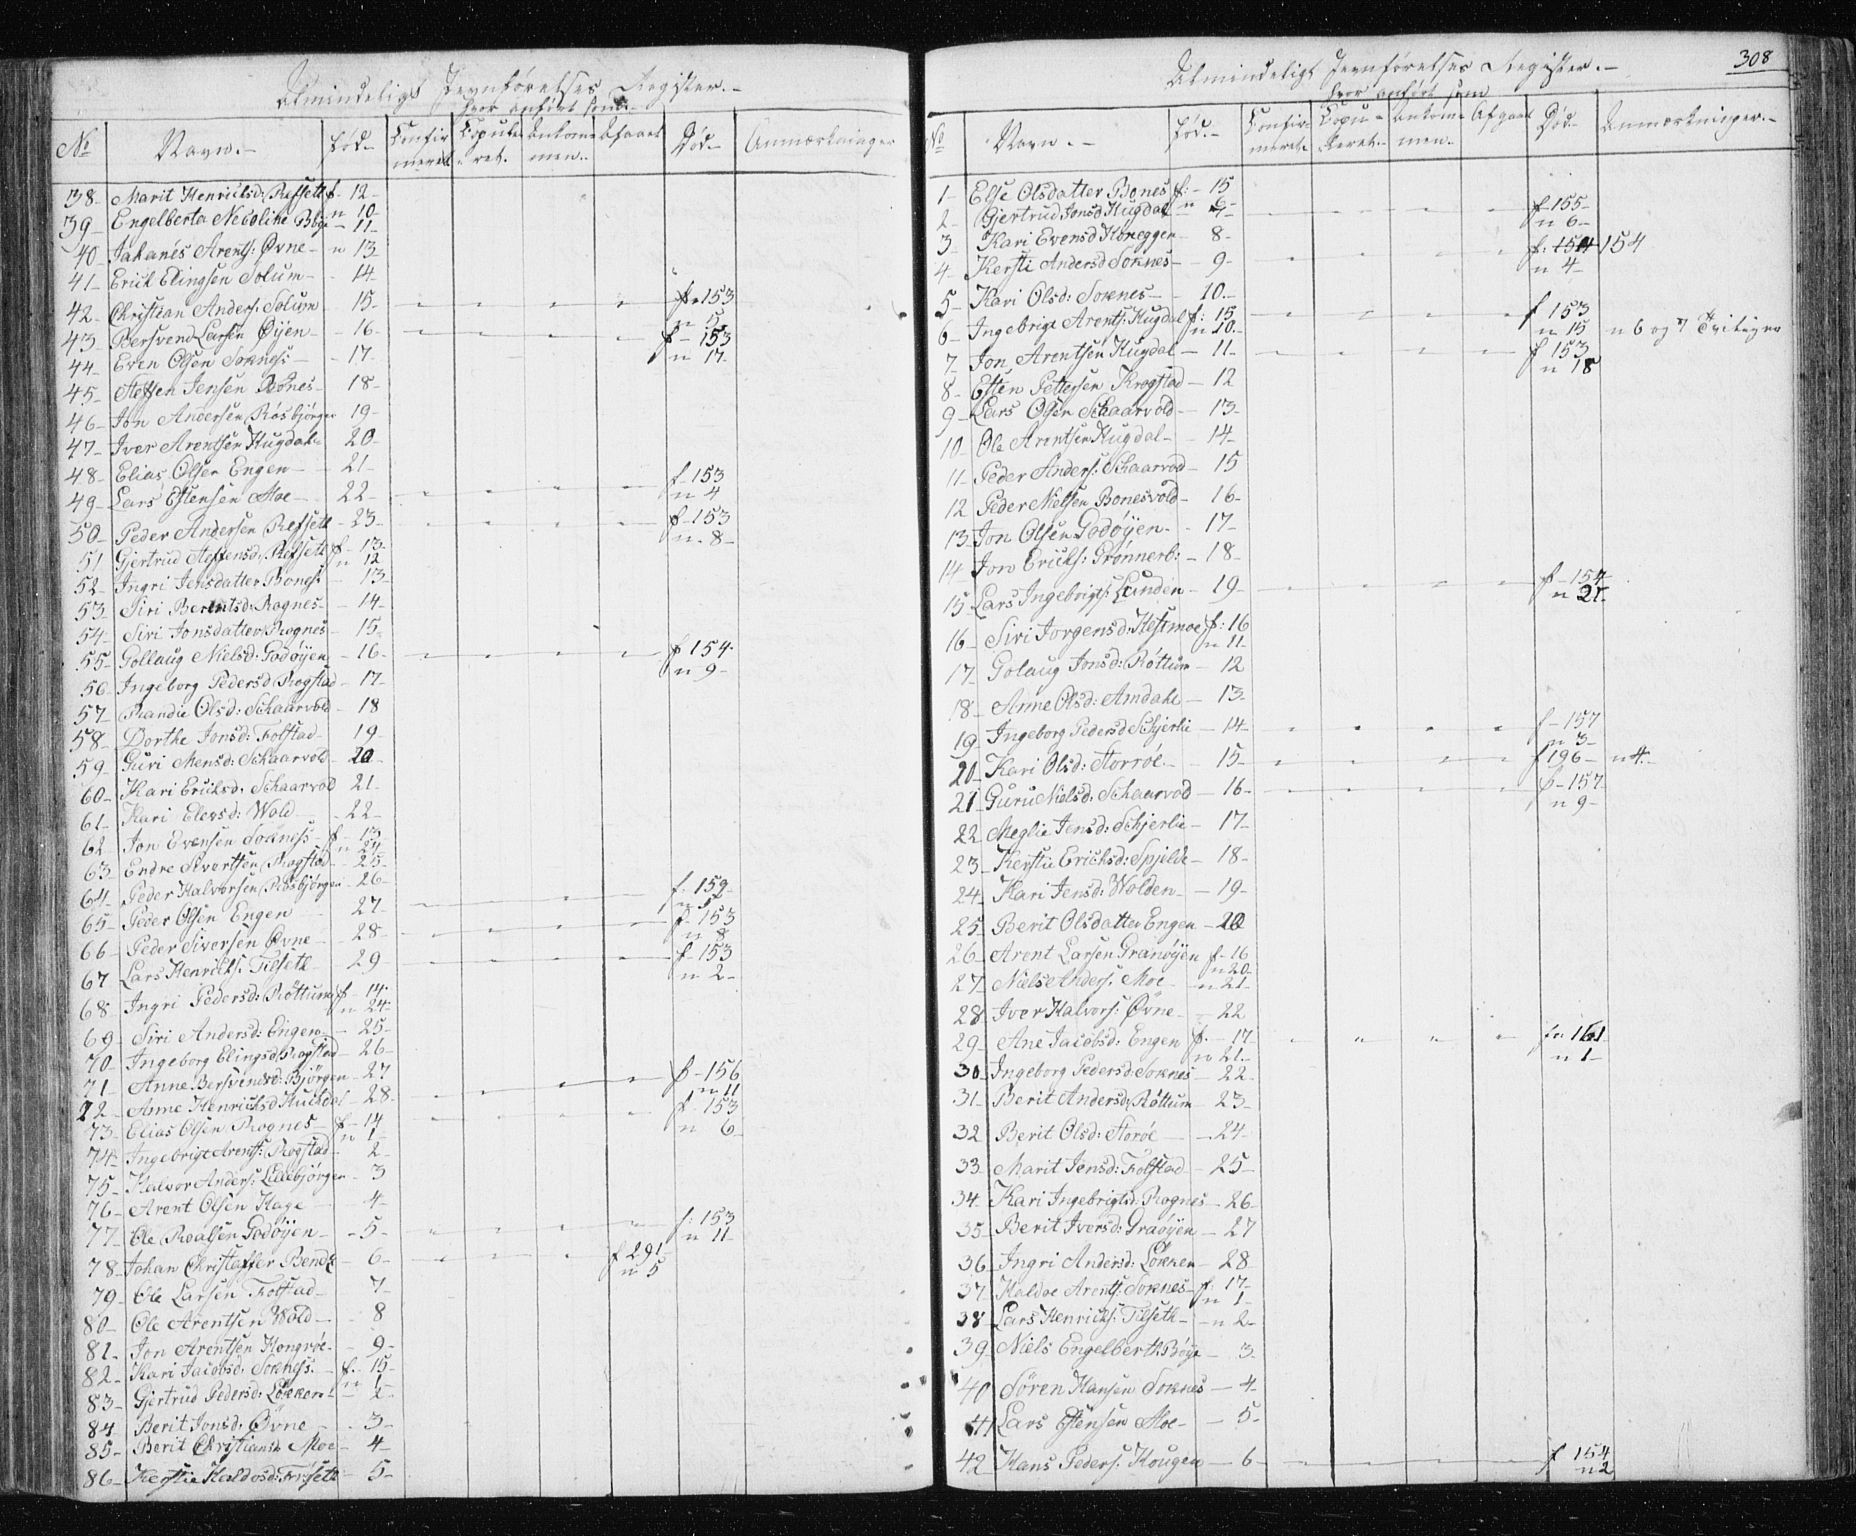 Almindeligt Jevnførelses Register.-
hvor anført som.-
No Navn.- Fød- Confirmeret. Copuleret. Ankommen. Afgaaet Død.- Anmærkninger
38- Marit Henricksd: Refseth f- 12- n 10-
39- Engelberta Nicoline Bøge - 11-
40- Johanes Arents: Øvne- n 13-
41- Erick Elingsen Solum- - 14-
42- Christian Anders: Solum 15- f- 153 n 5
43- Bersvend Larsen Øyen- - 16- f- 153 n 17-
44- Even Olsen Soknes: - 17-
45- Steffen Jensen Bones- - 18-
46- Jon Andersen Røsbjørgen 19-
47- Iver Arentsen Hugdal- 20-
48- Elias Olsen Engen- - 21-
49- Lars Estensen Moe- 22- f- 153 n 4
50- Peder Andersen Refseth - 23- f- 153 n. 8-
51 Gjertrud Steffensd: Refseth f- 13- n 12
52- Ingri Jensdatter Bones: - 13-
53- Siri Berentsd: Rognes- - 14-
54- Siri Jonsdatter Rognes- 15-
55- Gollaug Nielsd: Godøyen - 16- f- 154- n 9-
56- Ingeborg Pedersd Rogstad - 17-
57- Randie Olsd: Schaarvold - 18
58- Dorthe Jonsd: Folstad- 19-
59- Guri Mensd: Schaarvold- 20
60- Kari Ericksd: Schaarvod 21-
61- Kari Elevsd: Wold - 22-
62- Jon Evensen Soknes- f- 13 n 24
63- Endre Sivertsen Rogstad- - 25-
64- Peder Halvorsen Røsbjørgen - 26-
65- Peder Olsen Engen 27- f- 159-
66- Peder Siversen Øvne- - 28- f- 153 n 8
67 Lars Henricks: Tilseth- 29 f- 153 n 2-
68- Ingri Pedersd: Røttum f- 14- n 24-
69- Siri Andersd: Engen- - 25-
70- Ingeborg Elingsd Rogstad- 26-
71- Anne Bersvendsd: Bjørgen - 27 f- 156 n 11
72- Anne Henricksd Huckdal - 28- f- 153 n 6
73- Elias Olsen Rognes- f- 14 n 1-
74- Ingebrigt Arents: Rogstad- 2-
75- Halvor Anders: Lillebjørgen - 3
76- Arent Olsen Hage - 4-
77- Ole Roalsen Godøyen- - 5- f: 153 n 11
78- Johan Christoffer Bendz - 6- f 291- n 5
79- Ole Larsen Folstad- 7-
80- Ole Arentsen Wold- 8
81- Jon Arentsen Hongrøe- - 9-
82- Kari Jacobsd: Soknes: f- 15- n 1-
83- Gjertrud Pedersd: Løkken - 2-
84 Berit Jonsd: Øvne - 3-
85- Berit Christiansd: Moe - 4-
86- Kerstie Haldosd: Frøseth - 5-
308
Almindeligt Jevnførelses Register.-
hvor anført som
No Navn.- Fød.- Confirmeret. Copuleret. Ankommen. Afgaaet Død.- Anmærkninger.-
1- Else Olsdatter Bones f:- 15 n 6-
2- Gjertrud Jonsd Hugdal - 7- f- 155- n 6-
3- Kari Evensd Honeggen- 8-
4- Kersti Andersd Soknes- - 9- f: 154 154 n 4-
5- Kari Olsd: Soknes- - 10.-
6- Ingebrigt Arents: Hugdal f: 15 n 10- f 153 n 15 n 6 og 7 Tvilinger
7- Jon Arentsen Hugdal- 11- f 153 n 18
8- Esten Pettersen Krogstad- 12
9- Lars Olsen Schaarvold- - 13-
10- Ole Arentsen Hugdal- - 14-
11- Peder Anders: Schaarvod- 15
12 Peder Nielsen Bonesvold- 16-
13- Jon Olsen Godøyen- - 17-
14- Jon Ericks: Grønnerb: - 18-
15- Lars Ingebrigts: Lunden- - 19- f- 154- n 21-
16- Siri Jorgensd: Hestmoe f: 16 n 11-
17- Golaug Jonsd: Røttum - 12
18- Anne Olsd: Amdahl- - 13-
19- Ingeborg Pedersd Schjerlie - 14- f- 157 n 3-
20- Kari Olsd: Storrøe.- - 15- f 196- n 4-
21- Guru Nielsd: Schaarvod - 16- f- 157- n 9-
22 Meglie Jensd: Schjerlie - 17-
23- Kerstie Ericksd: Spjilde - 18-
24- Kari Jensd: Wolden- - 19-
25- Berit Olsdatter Engen - 20
26- Arent Larsen Granøyen f- 16 n 20-
27- Niels Anders: Moe - n 21-
28- Iver Halvors: Øvne- - 22
29- Ane Jacobsd: Engen f:- 17 n 21- f 161 n 1-
30- Ingeborg Pedersd: Soknes - 22-
31- Berit Andersd: Røttum - 23-
32 Berit Olsd: Storøe - 24-
33- Marit Jensd: Folstad - 25-
34- Kari Ingebrigtsd: Rognes - 26-
35- Berit Iversd: Graøyen - 27
36- Ingri Andersd: Løkken - 28
37- Haldoe Arents: Soknes- f: 17- n 1-
38 Lars Henricks: Tilseth- - n 2-
39- Niels Engelberth Bøge - 3-
40 Søren Hansen Soknes - 4-
41 Lars Estensen Moe- - 5-
42- Hans Peders: Hougen - 6- f 154 n 2